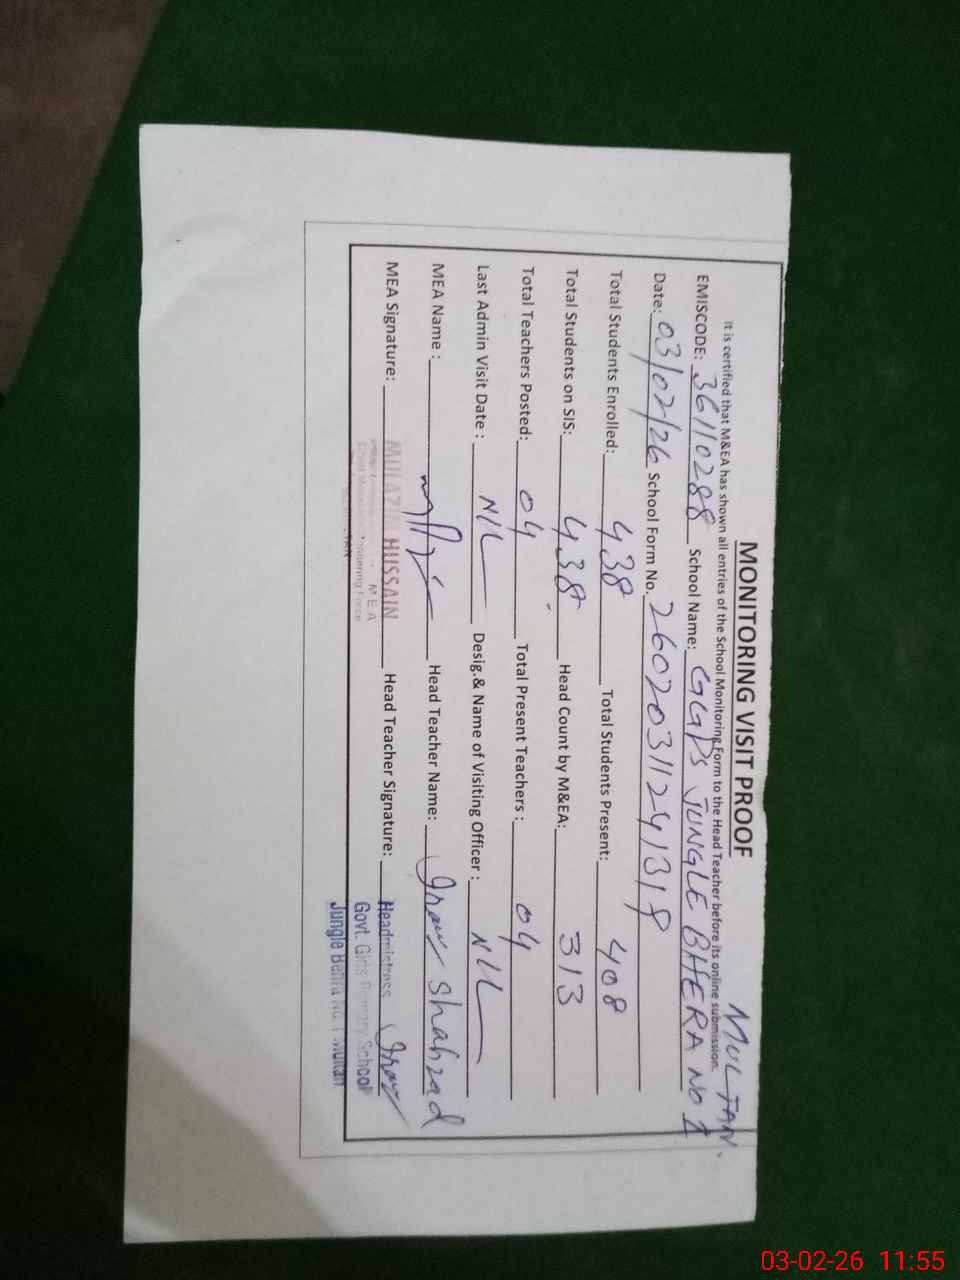 MULTAN.
MONITORING VISIT PROOF
It is certified that M&EA has shown all entries of the School Monitoring Form to the Head Teacher before its online submission.
EMISCODE: 36110288 School Name: GGPS JUNGLE BHERA NO 1
Date: 03/02/26 School Form No. 260203112413
Total Students Enrolled: 438 Total Students Present: 408
Total Students on SIS: 438 Head Count by M&EA: 313
Total Teachers Posted: 04 Total Present Teachers : 04
Last Admin Visit Date : NIL Desig.& Name of Visiting Officer : NIL
MEA Name : Head Teacher Name: Shahzad
MEA Signature: HUSSAIN Head Teacher Signature: Headmistress
M E A
Monitoring Force
Govt. Girls Primary School
Jungle Behra No. 1 Multan
03-02-26 11:55